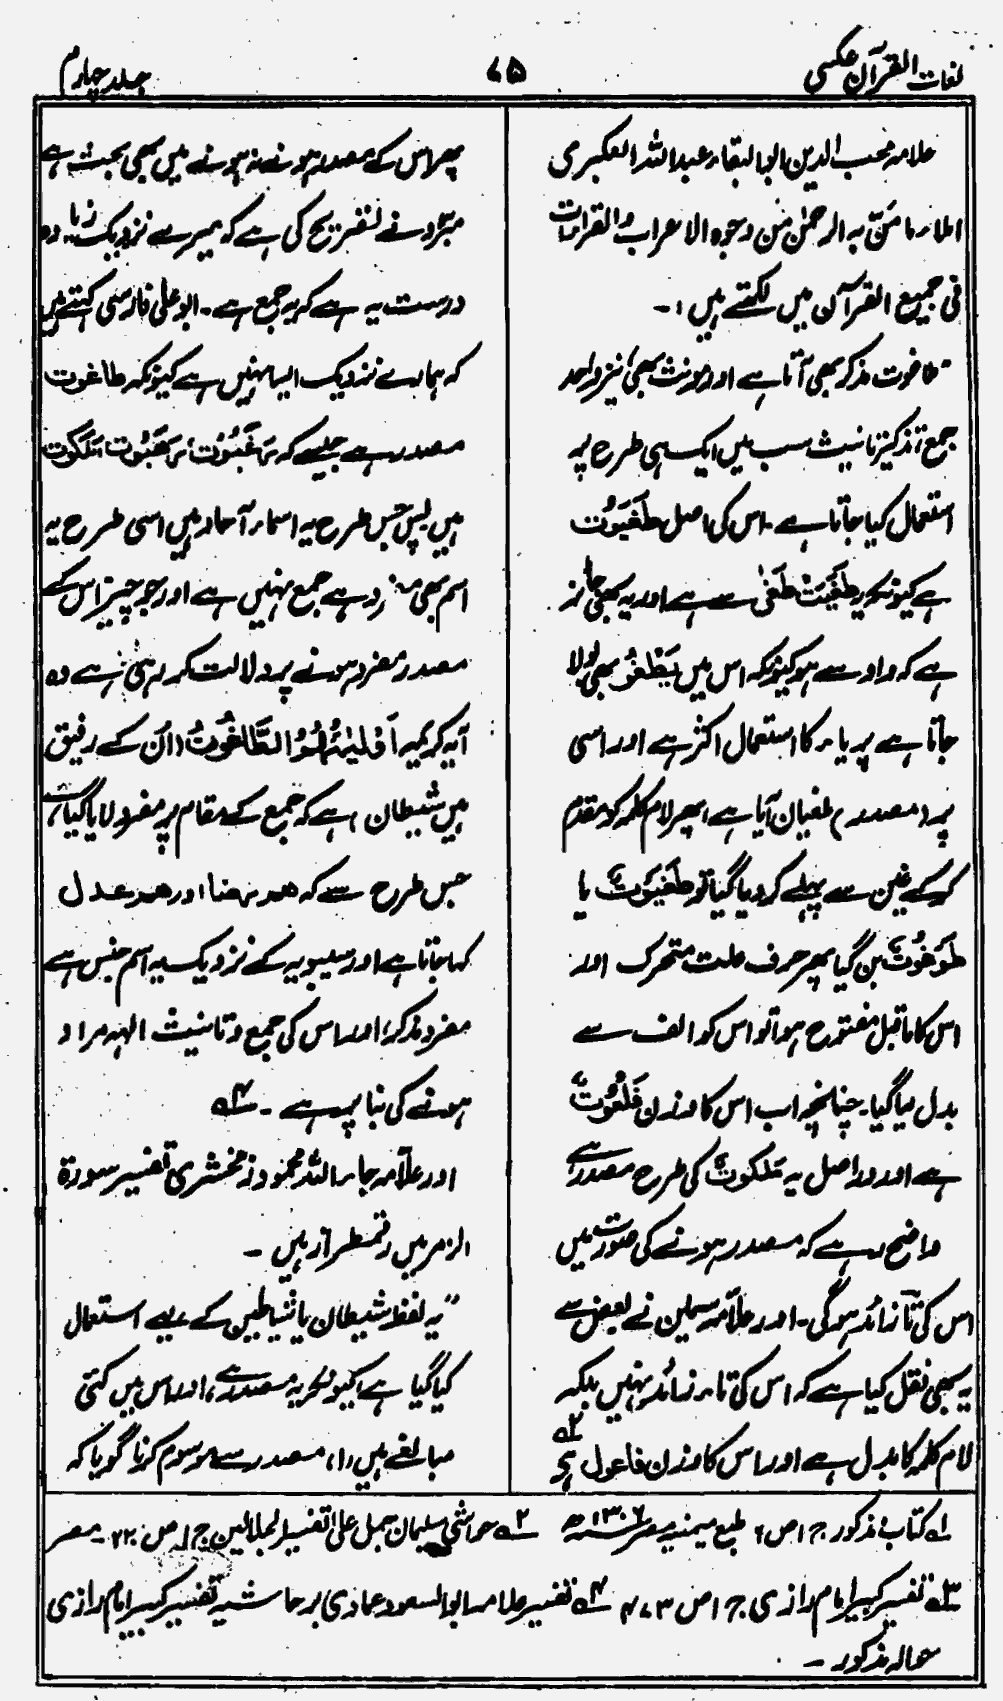 لغات القرآن عکسی
۷۵
جلد چہارم
علامہ محب الدین ابوالبقاء عبداللہ العکبری
املاء ما منّ بہ الرحمٰن من وجوہ الاعراب والقراءات
فی جمیع القرآن میں لکھتے ہیں :۔
"طاغوت مذکر بھی آتا ہے اور مونث بھی، نیز واحد
جمع تذکیر تانیث سب میں ایک ہی طرح پر
استعمال کیا جاتا ہے۔ اس کی اصل طَغَیُوت
ہے کیونکہ یہ طَغَیْتَ تَطْغٰی سے ہے اور یہ بھی جائز
ہے کہ واو سے ہو کیونکہ اس میں یَطْغُو بھی بولا
جاتا ہے پر یاء کا استعمال اکثر ہے اور اسی
پر (مصدر) طغیان آیا ہے، پھر لام کلمہ کو مقدم
کر کے غین سے پہلے کر دیا گیا تو طَیَغُوتٌ یا
طَوَغُوتٌ بن گیا پھر حرف علت متحرک اور
اس کا ماقبل مفتوح ہوا تو اس کو الف سے
بدل دیا گیا۔ چنانچہ اب اس کا وزن فَلَعُوتٌ
ہے اور دراصل یہ مَلکوتٌ کی طرح مصدر ہے
واضح رہے کہ مصدر ہونے کی صورت میں
اس کی تا زائد ہوگی۔ اور علامہ سلیمن نے بعض سے
یہ بھی نقل کیا ہے کہ اس کی تاء زائد نہیں بلکہ
لام کلمہ کا بدل ہے اور اس کا وزن فاعول ہے ۲؎
پھر اس کے مصدر ہونے نہ ہونے میں بھی بحث ہے
مبرّد نے تصریح کی ہے کہ میرے نزدیک زیادہ
درست یہ ہے کہ یہ جمع ہے۔ ابو علی فارسی کہتے ہیں
کہ ہمارے نزدیک ایسا نہیں ہے کیونکہ طاغوت
مصدر ہے جیسے کہ رَغَبُوت، رَھَبُوت، مَلَکُوت
ہیں پس جس طرح یہ اسماء آحاد ہیں اسی طرح یہ
اسم بھی مفرد ہے جمع نہیں ہے اور جو چیز اس کے
مصدر مفرد ہونے پر دلالت کر رہی ہے وہ
آیہ کریمہ اَوْلِیٰٓئُھُمُ الطَّاغُوْتُ (ان کے رفیق
ہیں شیطان) ہے کہ جمع کے مقام پر مفرد لایا گیا ہے
جس طرح سے کہ ھم رضا اور ھم عدل
کہا جاتا ہے اور سیبویہ کے نزدیک یہ اسم جنس ہے
مفرد مذکر، اور اس کی جمع و تانیث الہہ مراد
ہونے کی بنا پر ہے۔ ۴؎
اور علّامہ جار اللہ محمود زمخشری تفسیر سورۃ
الزمر میں رقمطراز ہیں۔
"یہ لفظ شیطان یا شیاطین کے لیے استعمال
کیا گیا ہے، کیونکہ یہ مصدر ہے، اور اس میں کئی
مبالغے ہیں (۱) مصدر سے موسوم کرنا گویا کہ
۱؎ کتاب مذکور ج ۱ ص ۶۰ طبع میمنیہ مصر ۱۳۰۶ھ ۲؎ حواشی سلیمان جمل علی تفسیر الجلالین ج ۱ ص ۲۲۰ مصر
۳؎ تفسیر کبیر امام رازی ج ۱ ص ۴۷۳ ۴؎ تفسیر علامہ ابوالسعود عمادی بر حاشیہ تفسیر کبیر امام رازی
حوالہ مذکور۔